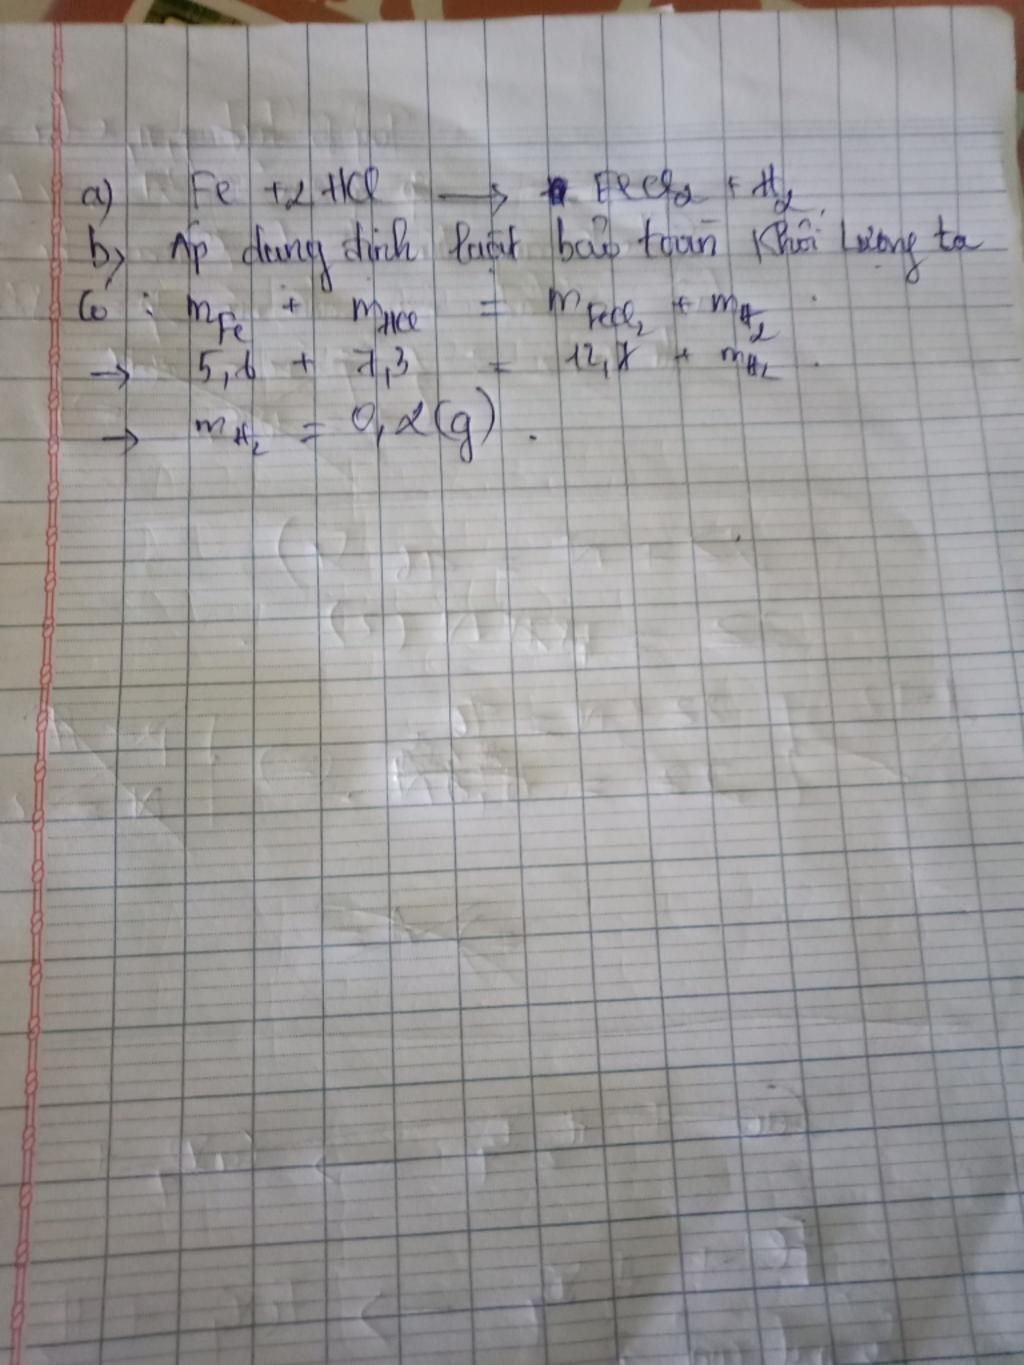 a) Fe + 2 HCl → FeCl₂ + H₂
b) Áp dụng định luật bảo toàn khối lượng ta
Có : m_Fe + m_HCl = m_FeCl₂ + m_H₂
→ 5,6 + 7,3 = 12,7 + m_H₂
→ m_H₂ = 0,2 (g).